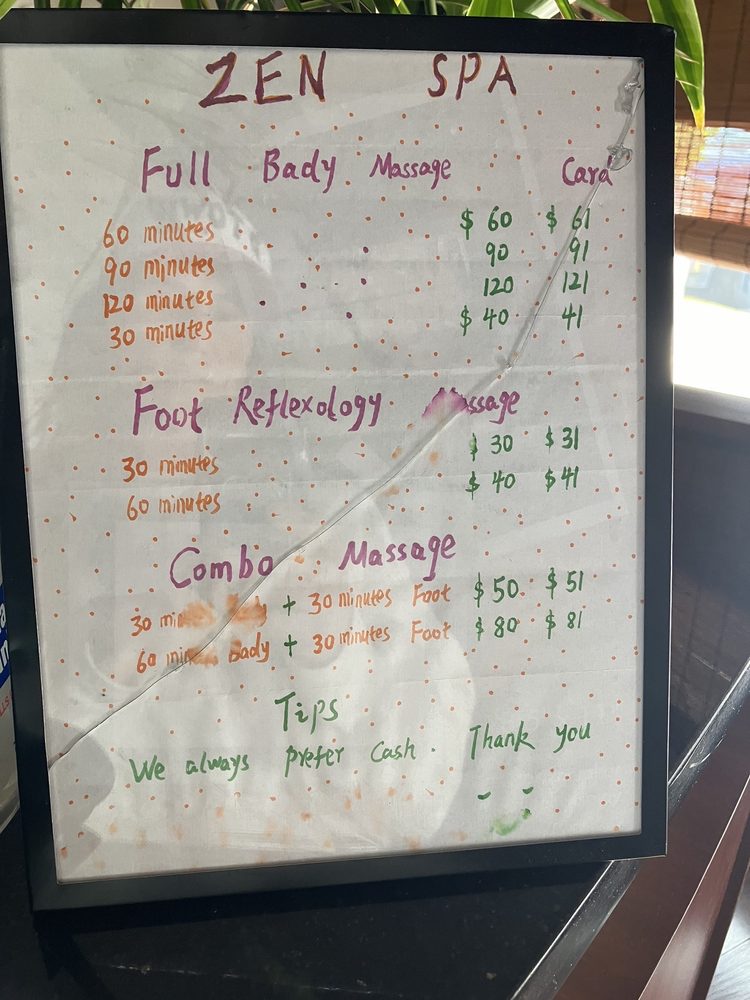 ZEN SPA
Full Bady Massage Card
60 minutes $ 60 $ 61
90 minutes 90 91
120 minutes 120 121
30 minutes $ 40 41
Foot Reflexology Massage
30 minutes $ 30 $ 31
60 minutes $ 40 $ 41
Combo Massage
30 + 30 minutes Foot $ 50 $ 51
60 Bady + 30 minutes Foot $ 80 $ 81
Tips
We always prefer cash. Thank you